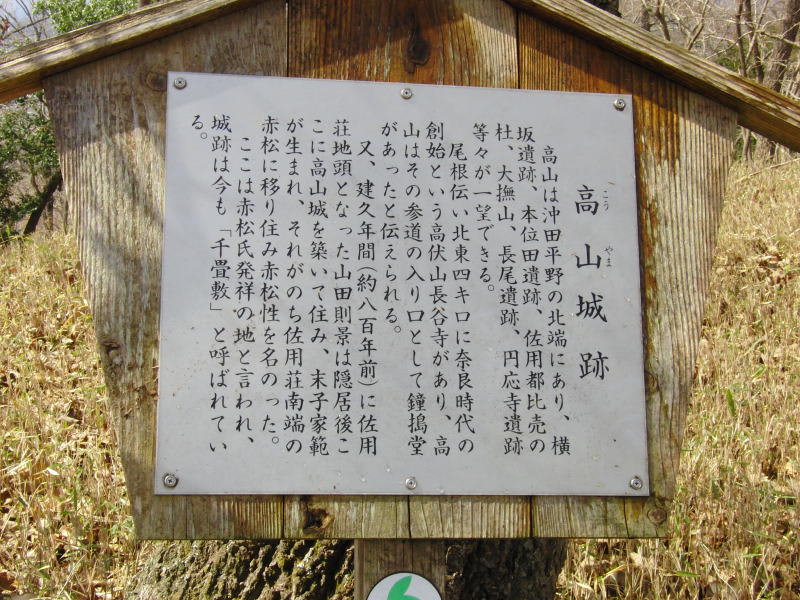 高山城跡
こう やま
高山は沖田平野の北端にあり、横
坂遺跡、本位田遺跡、佐用都比売の
杜、大撫山、長尾遺跡、円応寺遺跡
等々が一望できる。
尾根伝い北東四キロに奈良時代の
創始という高伏山長谷寺があり、高
山はその参道の入り口として鐘撞堂
があったと伝えられる。
又、建久年間(約八百年前)に佐用
荘地頭となった山田則景は隠居後こ
こに高山城を築いて住み、末子家範
が生まれ、それがのち佐用荘南端の
赤松に移り住み赤松性を名のった。
ここは赤松氏発祥の地と言われ、
城跡は今も「千畳敷」と呼ばれてい
る。